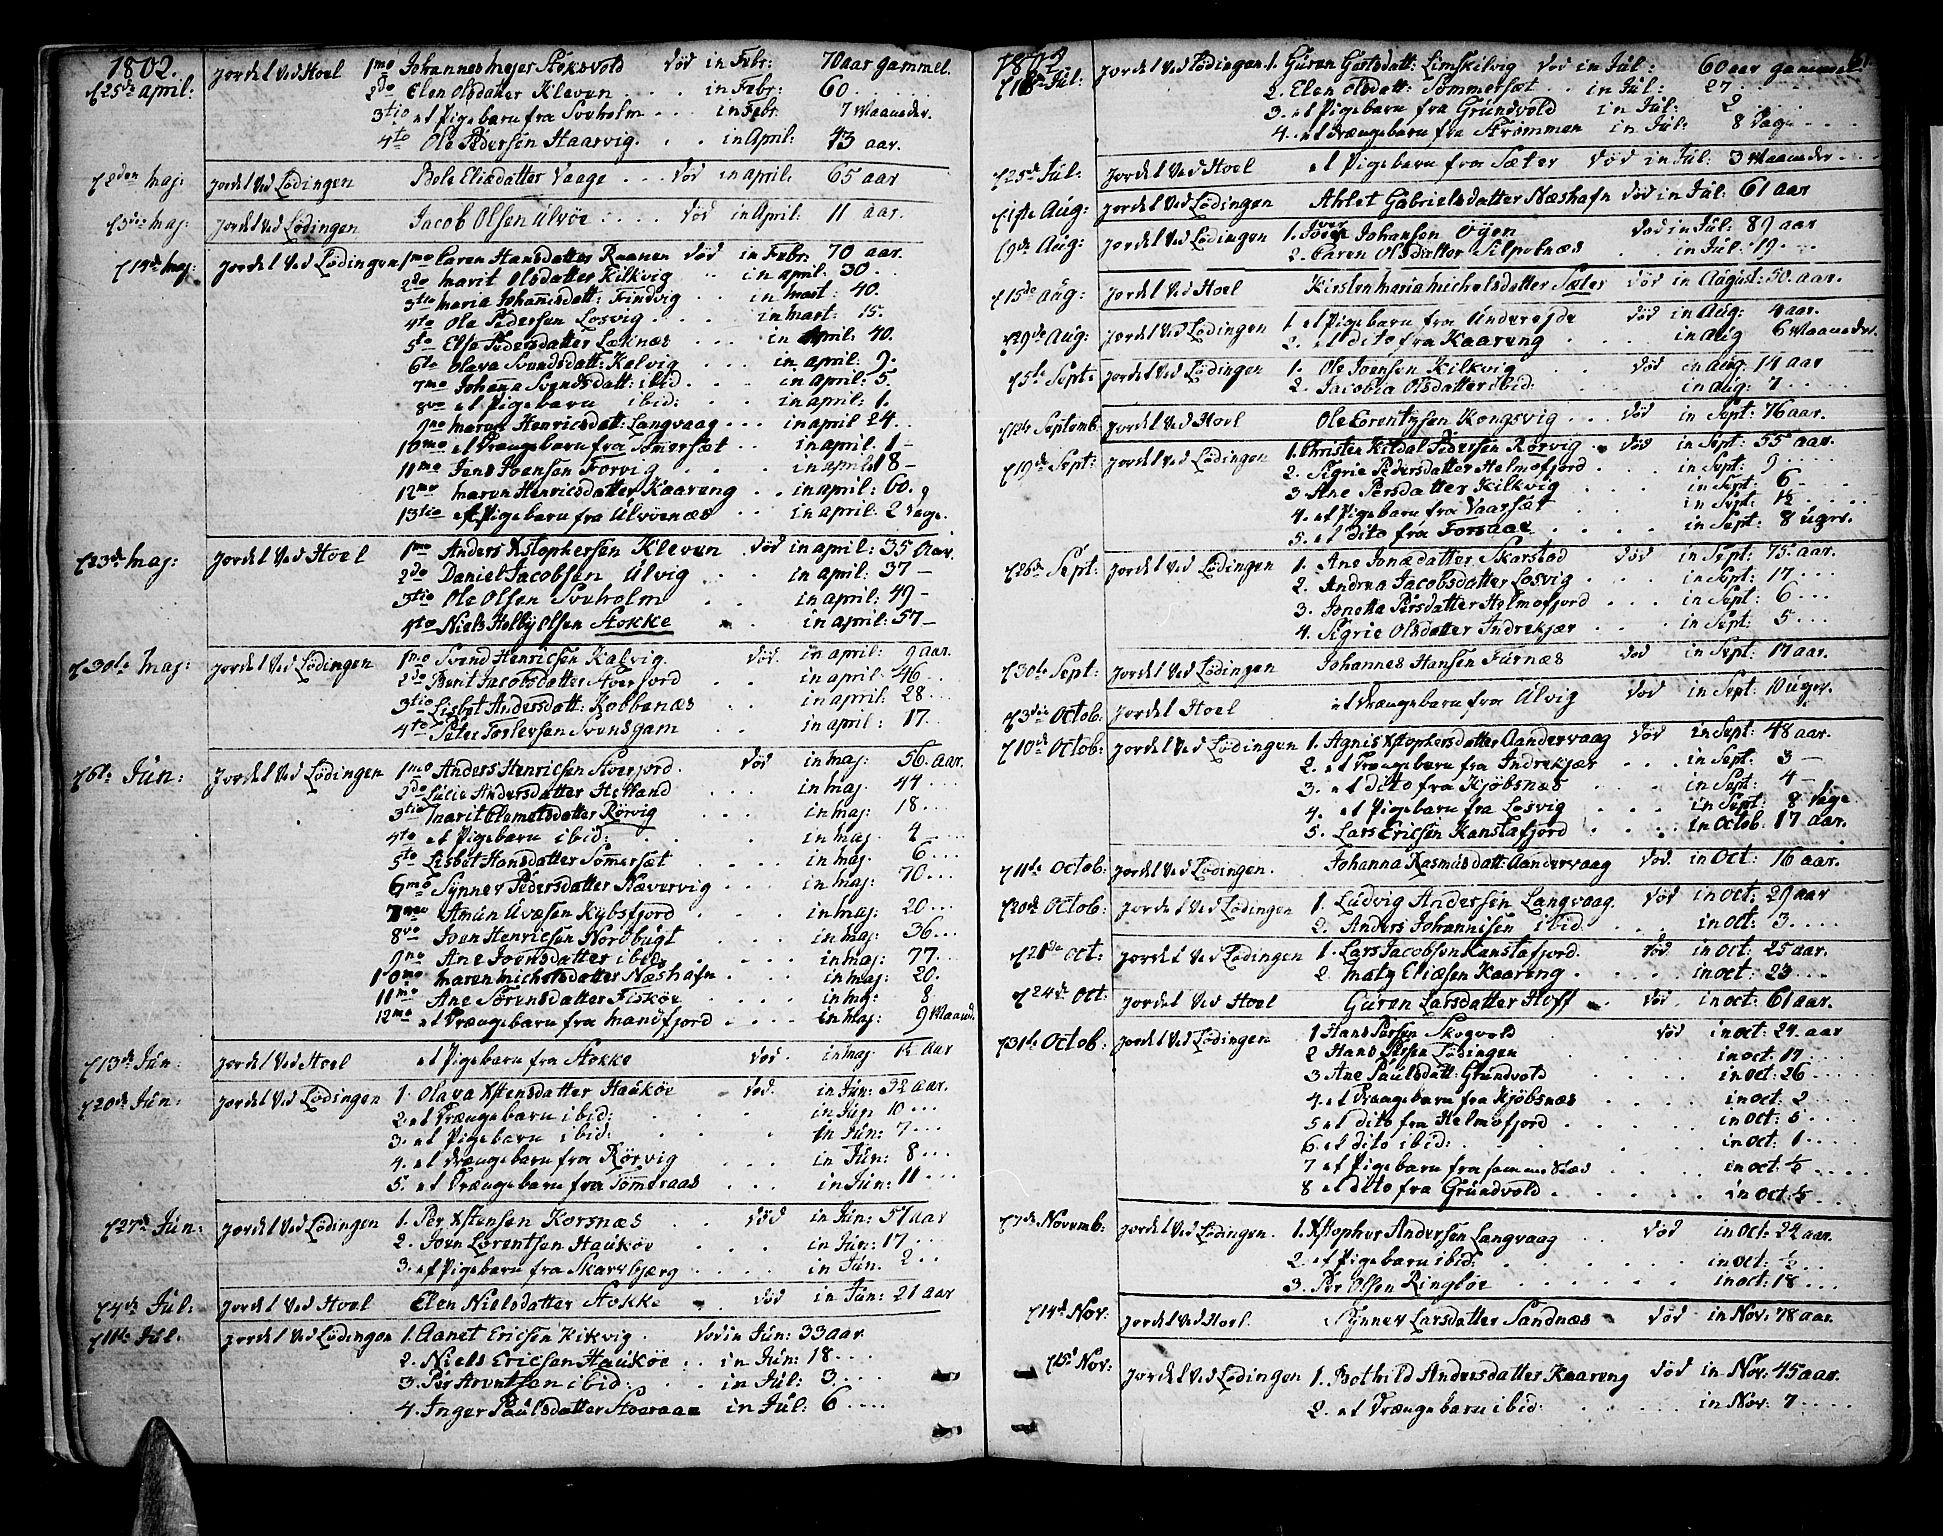 1802.
25de april: Jordet ved Hoel 1mo Johannes Mejer Stoksvold død in Febr: 70 aar gammel.
2do Elen Olsdatter Klevun . . in Febr: 60 . . . .
3tio et Pigebarn fra Svuholm . . . in Febr 7 Maaneder.
4to Ole Pedersen Haarvig. . . in April: 43 aar.
2den Maj: Jordet ved Lødingen Bole Eliædatter Vaage . . . død in april: 65 aar
3die Maj: Jordet ved Lødingen Jacob Olsen Ulvøe . . . . død in April: 11 aar.
14de Maj: Jordet ved Lødingen 1mo Caren Hansdatter Raanen død in Febr: 70 aar.
2do Marit Olsdatter Kilkvig . . in april: 30 . .
3tio Maria Johannisdatt: Findvig . . in Mart: 40.
4to Ole Pedersen Losvig . . . . in Mart: 15.
5to Else Pedersdatter Læknæs . . in April: 40.
6to Olava Svendsdatt: Kalvig . . . in april: 9.
7mo Johana Svendsdatt: ibid . . . in april: 5.
8vo et Pigebarn ibid: . . . in april: 1.
9no Maren Henricsdatt: Langvaag . . . in april 24 . .
10mo et Drængebarn fra Somersæt . . in April: 1 —
11mo Jens Joensen Forvig . . . in april: 18 —
12mo Maren Henricsdatter Kaareng . . in april: 60.
13tio et Pigebarn fra Ulvøenæs . . in april: 2 dage.
23de Maj: Jordet ved Hoel 1mo Anders Xstophersen Klevun død in april: 35 aar.
2do Daniel Jacobsen Ulvig . . in april: 37 —
3tio Ole Olsen Svuholm . . in april: 49 —
4to Niels Holby Olsen Stokke . . in april: 57 —
30te Maj: Jordet ved Lødingen 1mo Svend Henricsen Kalvig. død in april: 9 aar.
2do Berit Jacobsdatter Stverfjord . . in april: 46 . .
3tio Lisbet Andersdatt: Kobbenæs . . in april: 28 . . .
4to Peter Torlevsen Svensgam . . in april: 17.
6te Jun: Jordet ved Lødingen 1mo Anders Henricsen Stverfjord. død in Maj: 56. aar.
2do Lucie Andersdatter Hetland . . in Maj: 44 . . .
3tio Marit Clemetsdatter Rørvig . . in Maj: 18 . . .
4to et Pigebarn ibid: . . . in Maj: 4 — . . .
5to Lisbet Hansdatter Somersæt . . in Maj. 6 . . .
6mo Synnev Pedersdatter Nævervig . . . in Maj: 70 . . .
7mo Amun Uvæsen Kybsfjord . . . in Maj: 20 . . .
8vo Joen Henricsen Nordbugt . . . in Maj: 36 . . .
9no Ane Joensdatter ibid. . . . in Maj: 77 . . .
10mo Maren Micholsdatter Næshafn . . . in Maj: 20.
11mo Ane Sørensdatter Fiskøe . . . in Maj: 8
12mo et Drængebarn fra Mandfjord . . . . in Maj: 9 Maaned.
13de Jun: Jordet ved Hoel et Pigebarn fra Stokke død. in Maj 1½ aar
20de Jun: Jordet ved Lødingen 1. Olava Xstensdatter Haukøe død. in Jun: 32 aar.
2. et Drængebarn ibid: . . . in Jun: 10 . . .
3. et Pigebarn ibid: . . in Jun: 7 . . .
4. et Drængebarn fra Rørvig . . . . in Jun: 8 . . .
5. et Drængebarn fra Tømeraas . . . in Jun: 11 . . .
27de Jun: Jordet ved Lødingen 1. Per Xstensen Korsnæs . . død in Jun: 57 aar
2. Joen Lorentsen Haukøe . . . in Jun: 17 . . .
3. et Pigebarn fra Skarsbjærg . . . . in Jun: 2 . . .
4de Jul: Jordet ved Hoel Elen Nielsdatter Stokke . død in Jun: 21 aar
11te Jul: Jordet ved Lødingen 1. Aanet Ericsen Kikvig . død in Jun: 33 aar.
2. Niels Ericsen Haukøe . . in Jun: 18 . . .
3. Per Arentsen ibid: . . . in Jul: 3 . . .
4. Inger Paulsdatter Stoeraae in Jul: 6 . . .
1802
18de Jul: Jordet ved Lødingen 1. Guren Giertsdatt: Limskilvig død in Jul: 60 aar gammel
2. Elen Olsdatt: Sommersæt . . in Jul: 27 . . .
3. et Pigebarn fra Grundvold in Jul: 2 . . .
4. et Drængebarn fra Strømmen in Jul: 8 Dage . . .
25de Jul: Jordet ved Hoel et Pigebarn fra Sæter død in Jul: 3 Maaneder . . .
1ste Aug: Jordet ved Lødingen Ahlet Gabrielsdatter Næshafn død in Jul: 61 aar
9de Aug: Jordet ved Lødingen 1. Iver Johansen Øijen død in Jul: 89 aar
2. Caren Olsdatter Silpotnæs . . in Jul: 19 . . .
15de Aug: Jordet ved Hoel Kirsten Maria Micholsdatter Sæter død in August: 50 aar.
29de Aug: Jordet ved Lødingen 1. et Pigebarn fra Anderejde død in Aug: 4 aar.
2. et dito fra Kaareng . . . . in Aug 6 Maaneder.
5te Sept: Jordet ved Lødingen 1. Ole Joensen Kilkvig . . død in Aug: 14 aar
2. Jacobia Olsdatter ibid: . . . in Aug: 7 . . .
12te Septemb. Jordet ved Hoel Ole Lorentzsen Kongsvig . . død in Sept: 76 aar.
19de Sept: Jordet ved Lødingen 1. Christen Kildal Pedersen Rørvig . død in Sept: 55 aar.
2. Sigrie Pedersdatter Helmofjord . . . in Sept: 9 . . .
3 Ane Persdatter Kilkvig . . . in Sept: 6 —
4. et Pigebarn fra Vaarsæt . . . in Sept: 1½ . . .
5. et dito fra Forsaae . . . . in Sept: 8 uger.
26de Sept: Jordet ved Lødingen 1. Ane Jonædatter Skarstad død in Sept: 75 aar.
2. Andrea Jacobsdatter Losvig . . . in Sept: 17 . . .
3. Jonetta Persdatter Helmofjord . . . in Sept: 6 . . .
4. Sigrie Olsdatter Indrekjær . . . in Sept: 5 . . .
30te Sept: Jordet ved Lødingen Johannes Hansen Furnæs død in Sept: 17 aar.
3die Octob: Jordet Hoel et Drængebarn fra Ulvig død in Sept: 10 uger.
10de Octob: Jordet ved Lødingen 1. Agnis Xstophersdatter Aandervaag død in Sept: 48 aar.
2. et Drængebarn fra Indrekjær . . . in Sept: 3 —
3. et dito fra Kjøbsnæs . . . in Sept: 4 —
4. et Pigebarn fra Losvig . . . in Sept: 8 dage.
5. Lars Ericsen Kanstafjord . . . . in Octob. 17 aar.
11te Octob: Jordet ved Lødingen. Johanna Rasmusdatt: Aandervaag død. in Oct: 16 aar.
20de Octob: Jordet ved Lødingen 1. Ludvig Andersen Langvaag. død in oct: 29 aar
2. Anders Johannisen ibid . . . in oct: 3 . . .
21de Oct: Jordet ved Lødingen 1. Lars Jacobsen Kanstafjord. død in oct. 25 aar.
2. Maty Eliæsen Kaareng . . . . in oct: 23 . . .
24de Oct: Jordet ved Hoel Guren Larsdatter Hoff . død. in oct: 61 aar.
31te Octob: Jordet ved Lødingen 1 Hans Persen Skogvold død in oct: 24 aar
2 Hans Persen Lødingen in oct: 17 . . .
3 Ane Paulsdatt: Grundvold in oct: 26 . . .
4. et Drængebarn fra Kjøbsnæs . . . in oct: 2 . . .
5 et dito fra Helmofjord . . . . in oct: 5 . . .
6 et dito ibid: . . . in oct: 1 . . .
7 et Pigebarn fra samme Stæd . . in oct: ½ . . .
8 et dito fra Grundvold . . . . in oct: ½ . . .
7de Novemb: Jordet ved Lødingen. 1. Xstopher Andersen Langvaag . . død in oct: 22 aar.
2. et Pigebarn ibid: . . . in oct: ½ . . .
3. Per Olsen Ringbøe . . . . in oct: 18 . . .
14de Nov: Jordet ved Hoel. Synnev Larsdatter Sandnæs . død in Nov: 78 aar.
15de Nov: Jordet ved Lødingen 1. Bothild Andersdatter Kaareng død in Nov. 45 aar.
2. et Drængebarn ibid: . . . in Nov: 7 . . .